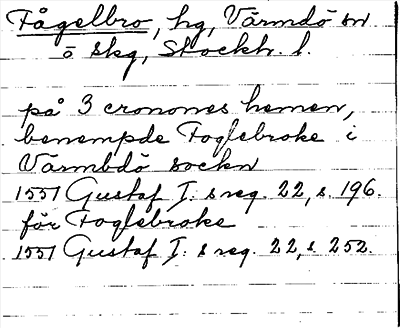 Fågelbro, hg, Värmdö sn
ö skg, Stockh. l.
på 3 cronones hemen,
benempde Foglebroke i
Värmbdö sockn
1551 Gustaf I: s reg. 22, s. 196.
för Foglebroke
1551 Gustaf I: s reg. 22, s 252.